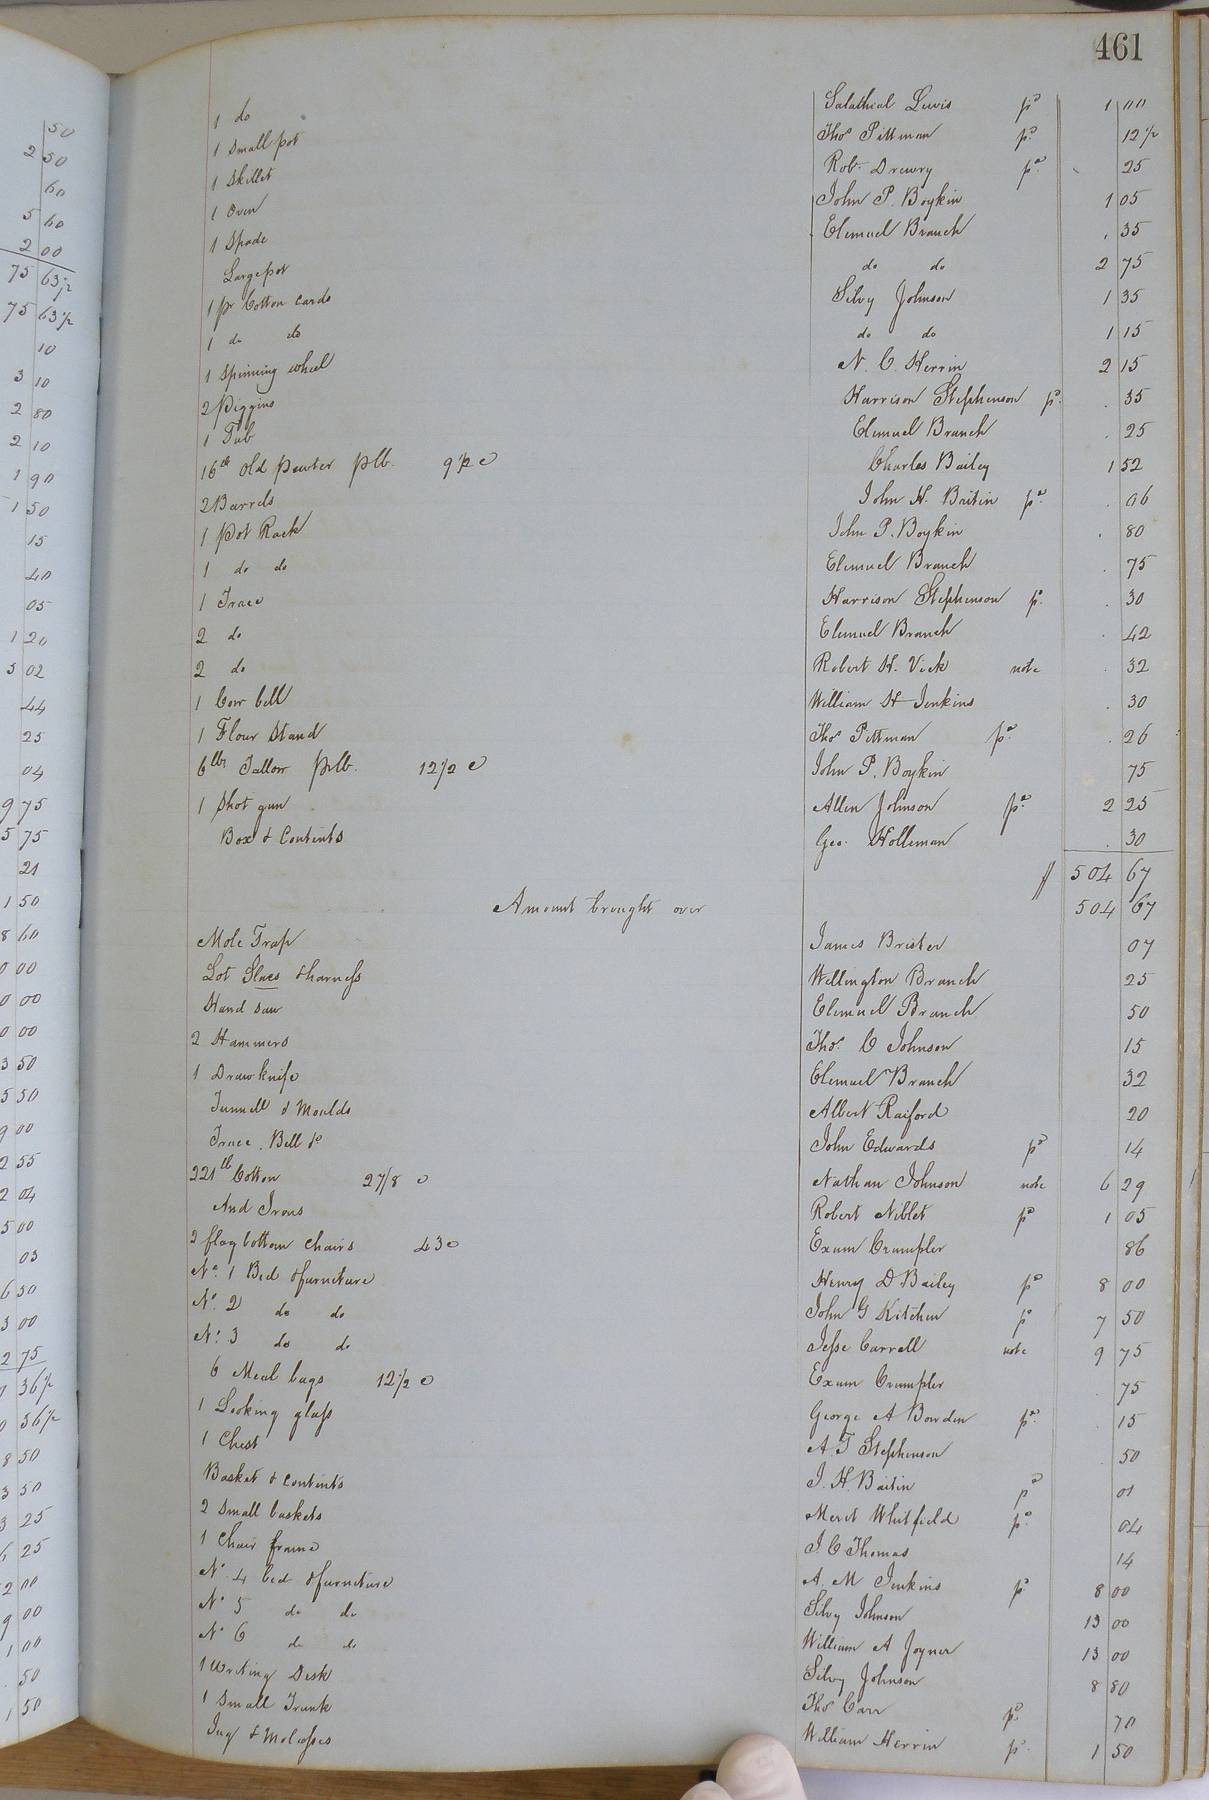 461
1 do Salathial Lewis pd 1 00
1 Small pot Thos Pittman pd 12 1/2
1 Skillet Robt Drewry pd 25
1 Oven John P. Boykin 1 05
1 Spade Elemuel Branch 35
Large pot do do 2 75
1 pr Cotton Cards Silvy Johnson 1 35
1 do do do do 1 15
1 Spinning wheel N. C. Herrin 2 15
2 Piggins Harrison Stephenson pd 35
1 Tub Elemuel Branch 25
16 lb Old Pewter plb. 9 1/2 c Charles Bailey 1 52
2 Barrels John H. Britin pd 06
1 Pot Rack John P. Boykin 80
1 do do Elemuel Branch 75
1 Trace Harrison Stephenson pd 30
2 do Elemuel Branch 42
2 do Robert H. Vick note 32
1 Cow bell William H Jenkins 30
1 Flour Stand Thos Pittman pd 26
6 lbs Tallow prlb. 12 1/2 c John P. Boykin 75
1 Shot gun Allen Johnson pd 2 25
Box & Contents Geo. Holleman 30
504 67
Amount brought over 504 67
Mole Trap James Brister 07
Lot Slaes & harness Wellington Branch 25
Hand saw Elemuel Branch 50
2 Hammers Thos. C Johnson 15
1 Draw knife Elemuel Branch 32
Tunnell & Moulds Albert Raiford 20
Trace, Bell &c John Edwards pd 14
221 lb Cotton 2 7/8 c Nathan Johnson note 6 29
And Irons Robert Niblet pd 1 05
2 flag bottom Chairs 43 c Exum Crumpler 86
No. 1 Bed & furniture Henry D Bailey pd 8 00
No. 2 do do John G Kitchen pd 7 50
No. 3 do do Jesse Carrell note 9 75
6 Meal bags 12 1/2 c Exum Crumpler 75
1 Looking glass George A Bowden pd 15
1 Chest A. T Stephenson 50
Basket & Contents J. H. Baitin pd 01
2 Small baskets Meret Whitfield pd 04
1 Chair frame J. C Thomas 14
No. 4 bed & furniture A. M Jenkins pd 8 00
No 5 do do Silvy Johnson 13 00
No 6 do do William A Joyner 13 00
1 Writing Desk Silvy Johnson 8 80
1 Small Trunk Thos Carr pd 70
Jug & Molasses William Herrin pd 1 50